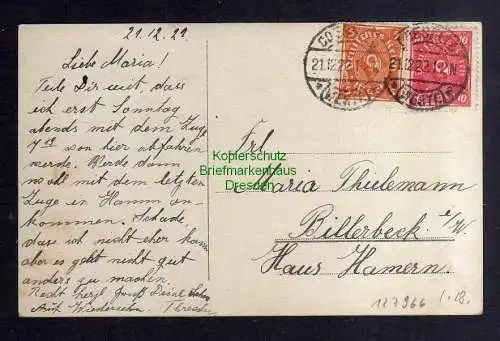 21.12.22
Liebe Maria!
Teile Dir mit, dass
ich erst Sonntag
abends mit dem Zuge
7 von hier abfahren
werde. Werde dann
wohl mit dem letzten
Zuge in Hamm an-
kommen. Schade,
dass ich nicht eher kann
aber es geht nicht gut
anders zu machen.
Recht herzl. Gruß Deine
Auf Wiedersehn.
21.12.22
21.12.22
Kopierschutz
Briefmarkenhaus
Dresden
Frl.
Maria Thielemann
Billerbeck i/W.
Haus Hamern.
127966 1.18.